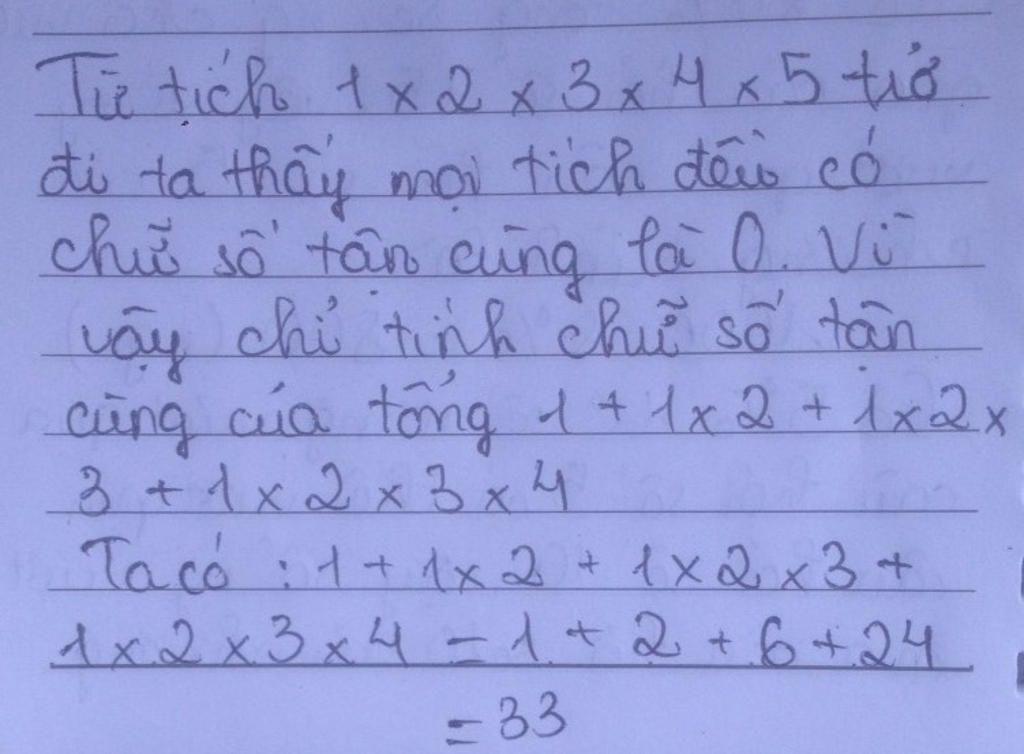 Từ tích 1 x 2 x 3 x 4 x 5 trở
đi ta thấy mọi tích đều có
chữ số tận cùng là 0. Vì
vậy chỉ tính chữ số tận
cùng của tổng 1 + 1 x 2 + 1 x 2 x
3 + 1 x 2 x 3 x 4
Ta có : 1 + 1 x 2 + 1 x 2 x 3 +
1 x 2 x 3 x 4 = 1 + 2 + 6 + 24
= 33